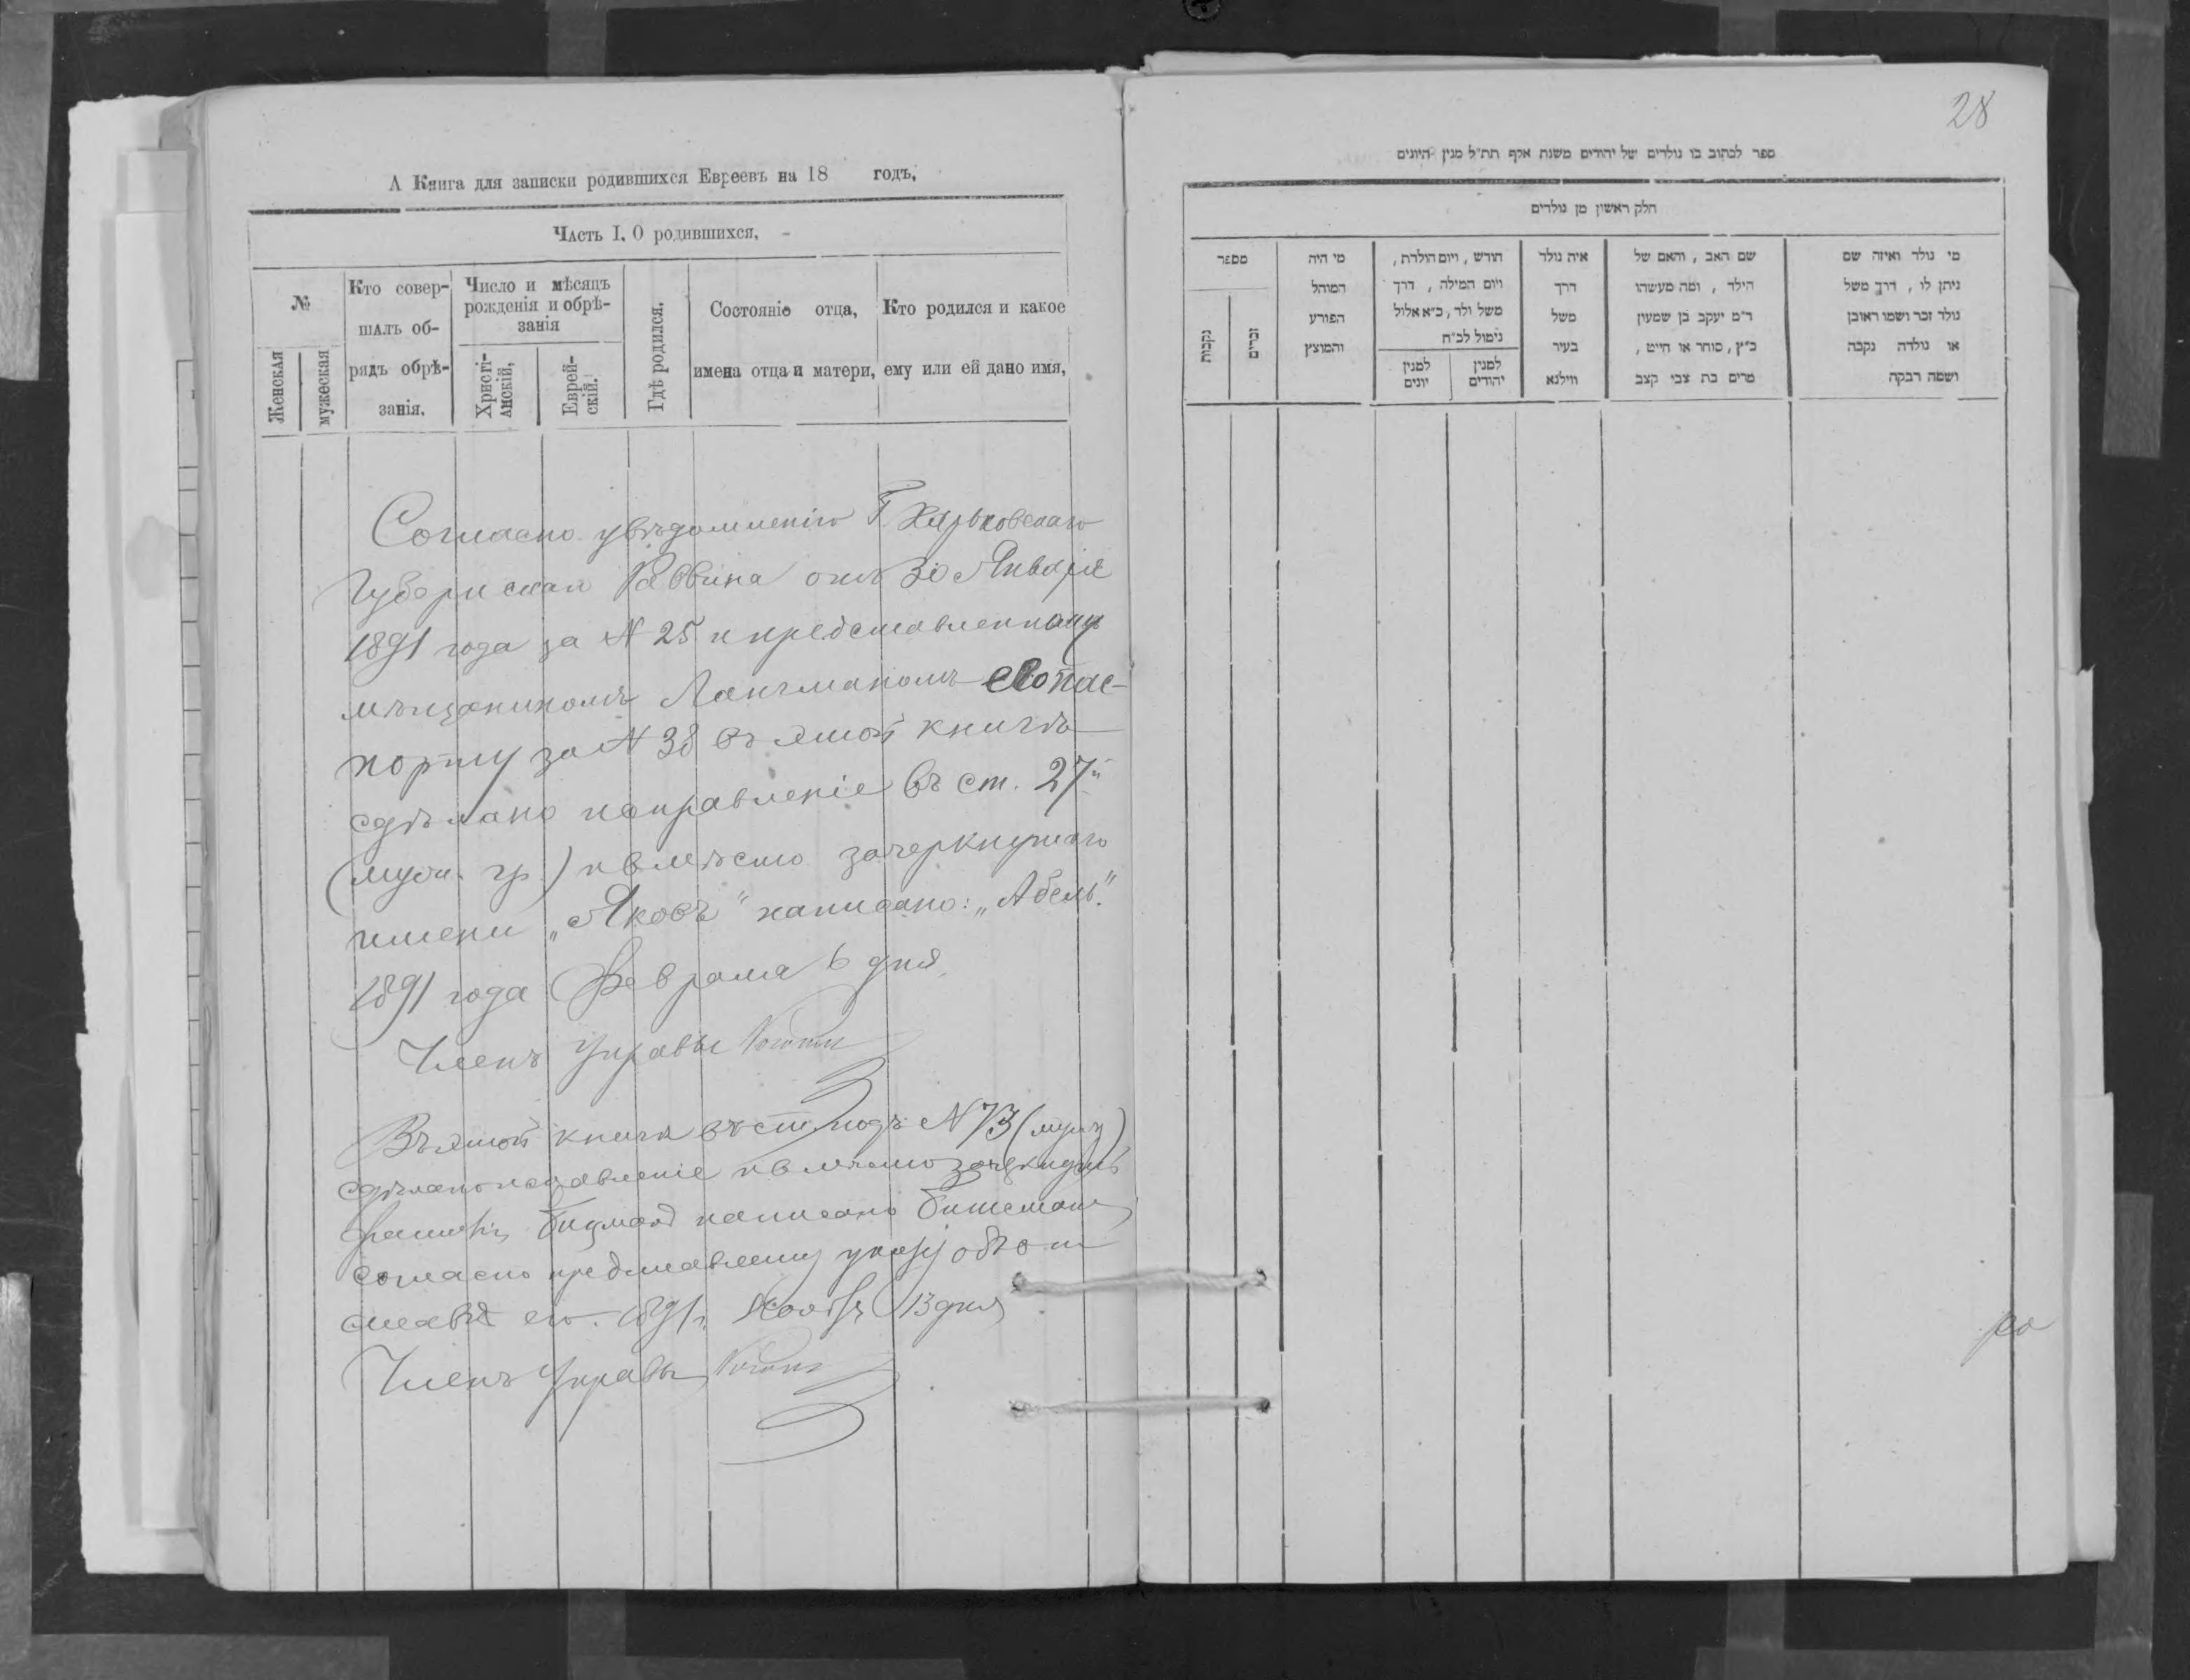 А Книга для записки родившихся Евреевъ на 18 годъ,
Часть I. О родившихся.
№
Женская
мужеская
Кто совер-
шалъ об-
рядъ обрѣ-
занія.
Число и мѣсяцъ
рожденія и обрѣ-
занія
Христі-
анскій,
Еврей-
скій.
Гдѣ родился.
Состояніе отца,
имена отца и матери,
Кто родился и какое
ему или ей дано имя,
Согласно увѣдомленію Г. Харьковскаго
Губернскаго Раввина отъ 30 Января
1891 года за № 25 и представленному
мѣщаниномъ пас-
порту за № 38 въ этой книгѣ
сдѣлано исправленіе въ ст. 27й
(муж. гр.) и вмѣсто зачеркнутаго
имени „Яковъ" написано: „Абель".
1891 года Февраля 6 дня.
Членъ Управы
Въ этой книгѣ въ ст. подъ № 73 (муж)
сдѣлано исправленіе и вмѣсто
написано
согласно указу объ от
его. 1891 г. Ноября 13 дня
Членъ Управы
28
ספר לכתוב בו נולדים של יהודים משנת אלף תת״ל מנין היונים
חלק ראשון מן נולדים
מספר
נקבות
זכרים
מי היה
המוהל
הפורע
והמוצץ
חודש , ויום הולדת ,
ויום המילה , דרך
משל ולד , כ״א אלול
נימול לכ״ח
למנין
יונים
למנין
יהודים
איה נולד
דרך
משל
בעיר
ווילנא
שם האב , והאם של
הילד , ומה מעשהו
ר״מ יעקב בן שמעון
כ״ץ , סוחר או חייט ,
מרים בת צבי קצב
מי נולד ואיזה שם
ניתן לו , דרך משל
נולד זכר ושמו ראובן
או נולדה נקבה
ושמה רבקה